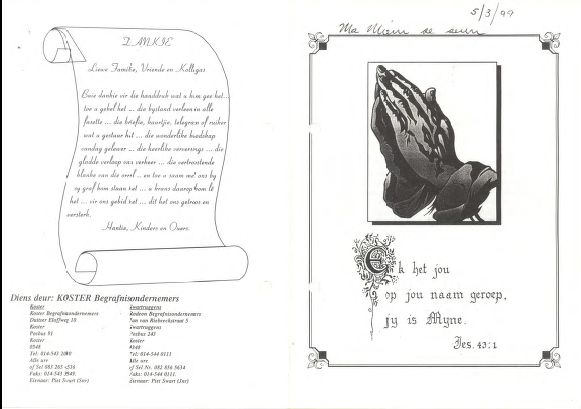 DANKIE
Liewe Familie, Vriende en Kollegas
Baie dankie vir die handdruk wat u hom gee het...
toe u gebel het ... die bystand verleen in alle
fasette ... die briefie, kaartjie, telegram of ruiker
wat u gestuur het ... die wonderlike boodskap
vandag gelewer ... die heerlike verversings ... die
gladde verloop van verkeer ... die vertroostende
klanke van die orrel .. en toe u saam met ons by
sy graf kom staan het ... u krans daarop kom lê
het ... vir ons gebid het ... dit het ons getroos en
versterk.
Hantie, Kinders en Ouers.
Diens deur: KOSTER Begrafnisondernemers
Koster
Koster Begrafnisondernemers
Duitser Eloffweg 10
Koster
Posbus 91
Koster
0348
Tel: 014-543 2080
Alle ure
of Sel 083 265
Faks: 014-543
Eienaar: Piet Swart (Snr)
Swartruggens
Rodeon Begrafnisondernemers
Jan van Riebeeckstraat 5
Swartruggens
Posbus 243
Koster
0348
Tel: 014-544 0111
Alle ure.
of Sel Nr. 082 856 5634
Faks: 014-544 0111.
Eienaar: Piet Swart (Jnr)
5/3/99
Ma Mien se seun
Ek het jou
op jou naam geroep,
jy is Myne.
Jes. 43:1